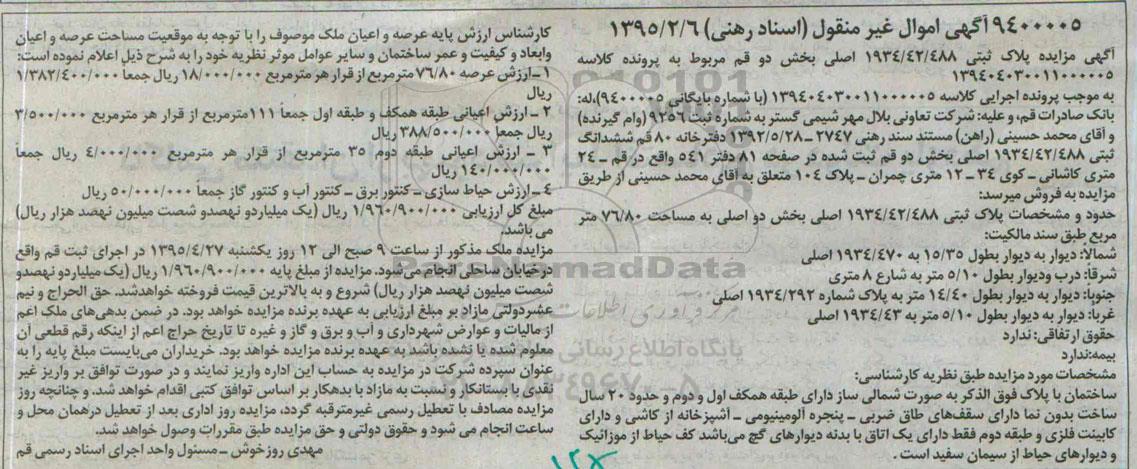 ۹۴۰۰۰۰۵ آگهی اموال غیر منقول (اسناد رهنی) ۱۳۹۵/۲/۶
آگهی مزایده پلاک ثبتی ۱۹۳۴/۴۲/۴۸۸ اصلی بخش دو قم مربوط به پرونده کلاسه
۱۳۹۴۰۴۰۳۰۰۱۱۰۰۰۰۰۵
به موجب پرونده اجرایی کلاسه ۱۳۹۴۰۴۰۳۰۰۱۱۰۰۰۰۰۵ (با شماره بایگانی ۹۴۰۰۰۰۵)،له:
بانک صادرات قم، و علیه: شرکت تعاونی بلال مهر شیمی گستر به شماره ثبت ۹۲۵۶ (وام گیرنده)
و آقای محمد حسینی (راهن) مستند سند رهنی ۲۷۴۷ـ۱۳۹۲/۵/۲۸ دفترخانه ۸۰ قم ششدانگ
ثبتی ۱۹۳۴/۴۲/۴۸۸ اصلی بخش دو قم ثبت شده در صفحه ۸۱ دفتر ۵۴۱ واقع در قم ـ ۲۴
متری کاشانی ـ کوی ۳۴ ـ ۱۲ متری چمران ـ پلاک ۱۰۴ متعلق به آقای محمد حسینی از طریق
مزایده به فروش میرسد:
حدود و مشخصات پلاک ثبتی ۱۹۳۴/۴۲/۴۸۸ اصلی بخش دو اصلی به مساحت ۷۶/۸۰ متر
مربع طبق سند مالکیت:
شمالاً: دیوار به دیوار بطول ۱۵/۳۵ به ۱۹۳۴/۴۷۰ اصلی
شرقاً: درب ودیوار بطول ۵/۱۰ متر به شارع ۸ متری
جنوباً: دیوار به دیوار بطول ۱۴/۴۰ متر به پلاک شماره ۱۹۳۴/۲۹۲ اصلی
غرباً: دیوار به دیوار بطول ۵/۱۰ متر به ۱۹۳۴/۴۳ اصلی
حقوق ارتفاقی: ندارد
بیمه:ندارد
مشخصات مورد مزایده طبق نظریه کارشناسی:
ساختمان با پلاک فوق الذکر به صورت شمالی ساز دارای طبقه همکف اول و دوم و حدود ۲۰ سال
ساخت بدون نما دارای سقف‌های طاق ضربی ـ پنجره آلومینیومی ـ آشپزخانه از کاشی و دارای
کابینت فلزی و طبقه دوم فقط دارای یک اتاق با بدنه دیوارهای گچ می‌باشد کف حیاط از موزائیک
و دیوارهای حیاط از سیمان سفید است.
کارشناس ارزش پایه عرصه و اعیان ملک موصوف را با توجه به موقعیت مساحت عرصه و اعیان
وابعاد و کیفیت و عمر ساختمان و سایر عوامل موثر نظریه خود را به شرح ذیل اعلام نموده است:
۱ـ ارزش عرصه ۷۶/۸۰ مترمربع از قرار هر مترمربع ۱۸/۰۰۰/۰۰۰ ریال جمعاً ۱/۳۸۲/۴۰۰/۰۰۰
ریال
۲ ـ ارزش اعیانی طبقه همکف و طبقه اول جمعاً ۱۱۱مترمربع از قرار هر مترمربع ۳/۵۰۰/۰۰۰
ریال جمعاً ۳۸۸/۵۰۰/۰۰۰ ریال
۳ ـ ارزش اعیانی طبقه دوم ۳۵ مترمربع از قرار هر مترمربع ۴/۰۰۰/۰۰۰ ریال جمعاً
۱۴۰/۰۰۰/۰۰۰ ریال
۴ـ ارزش حیاط سازی ـ کنتور برق ـ کنتور آب و کنتور گاز جمعاً ۵۰/۰۰۰/۰۰۰ ریال
مبلغ کل ارزیابی ۱/۹۶۰/۹۰۰/۰۰۰ ریال (یک میلیاردو نهصدو شصت میلیون نهصد هزار ریال)
می باشد.
مزایده ملک مذکور از ساعت ۹ صبح الی ۱۲ روز یکشنبه ۱۳۹۵/۴/۲۷ در اجرای ثبت قم واقع
درخیابان ساحلی انجام می‌شود. مزایده از مبلغ پایه ۱/۹۶۰/۹۰۰/۰۰۰ ریال (یک میلیاردو نهصدو
شصت میلیون نهصد هزار ریال) شروع و به بالاترین قیمت فروخته خواهدشد. حق الحراج و نیم
عشردولتی مازاد بر مبلغ ارزیابی به عهده برنده مزایده خواهد بود. در ضمن بدهی‌های ملک اعم
از مالیات و عوارض شهرداری و آب و برق و گاز و غیره تا تاریخ حراج اعم از اینکه رقم قطعی آن
معلوم شده یا نشده باشد به عهده برنده مزایده خواهد بود. خریداران می‌بایست مبلغ پایه را به
عنوان سپرده شرکت در مزایده به حساب این اداره واریز نمایند و در صورت توافق بر واریز غیر
نقدی با بستانکار و نسبت به مازاد با بدهکار بر اساس توافق کتبی اقدام خواهد شد. و چنانچه روز
مزایده مصادف با تعطیل رسمی غیرمترقبه گردد، مزایده روز اداری بعد از تعطیل درهمان محل و
ساعت انجام می شود و حقوق دولتی و حق مزایده طبق مقررات وصول خواهد شد.
مهدی روزخوش ـ مسئول واحد اجرای اسناد رسمی قم